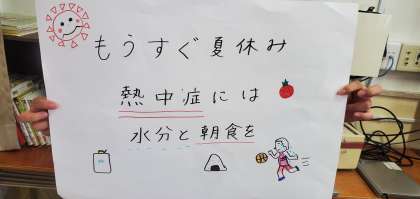 もうすぐ夏休み
熱中症には
水分と朝食を